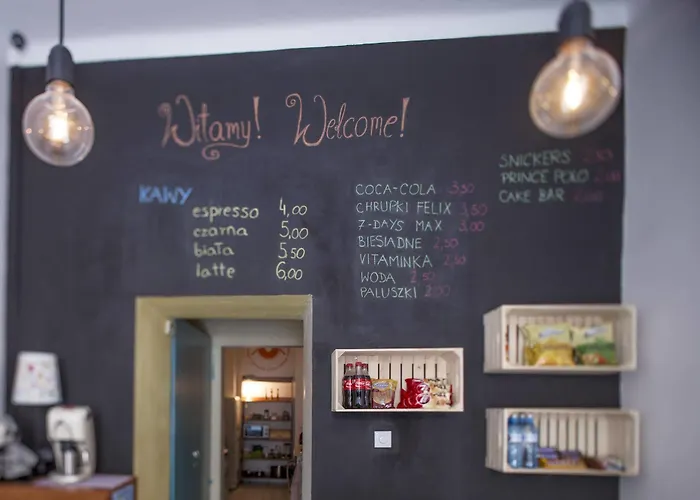 Witamy! Welcome!
KAWY
espresso 4,00
czarna 5,00
biała 5,50
latte 6,00
COCA-COLA 3,50
CHRUPKI FELIX 3,50
7-DAYS MAX 3,00
BIESIADNE 2,50
VITAMINKA 2,50
WODA 2,50
PALUSZKI 2,00
SNICKERS 2,50
PRINCE POLO 2,00
CAKE BAR 2,00